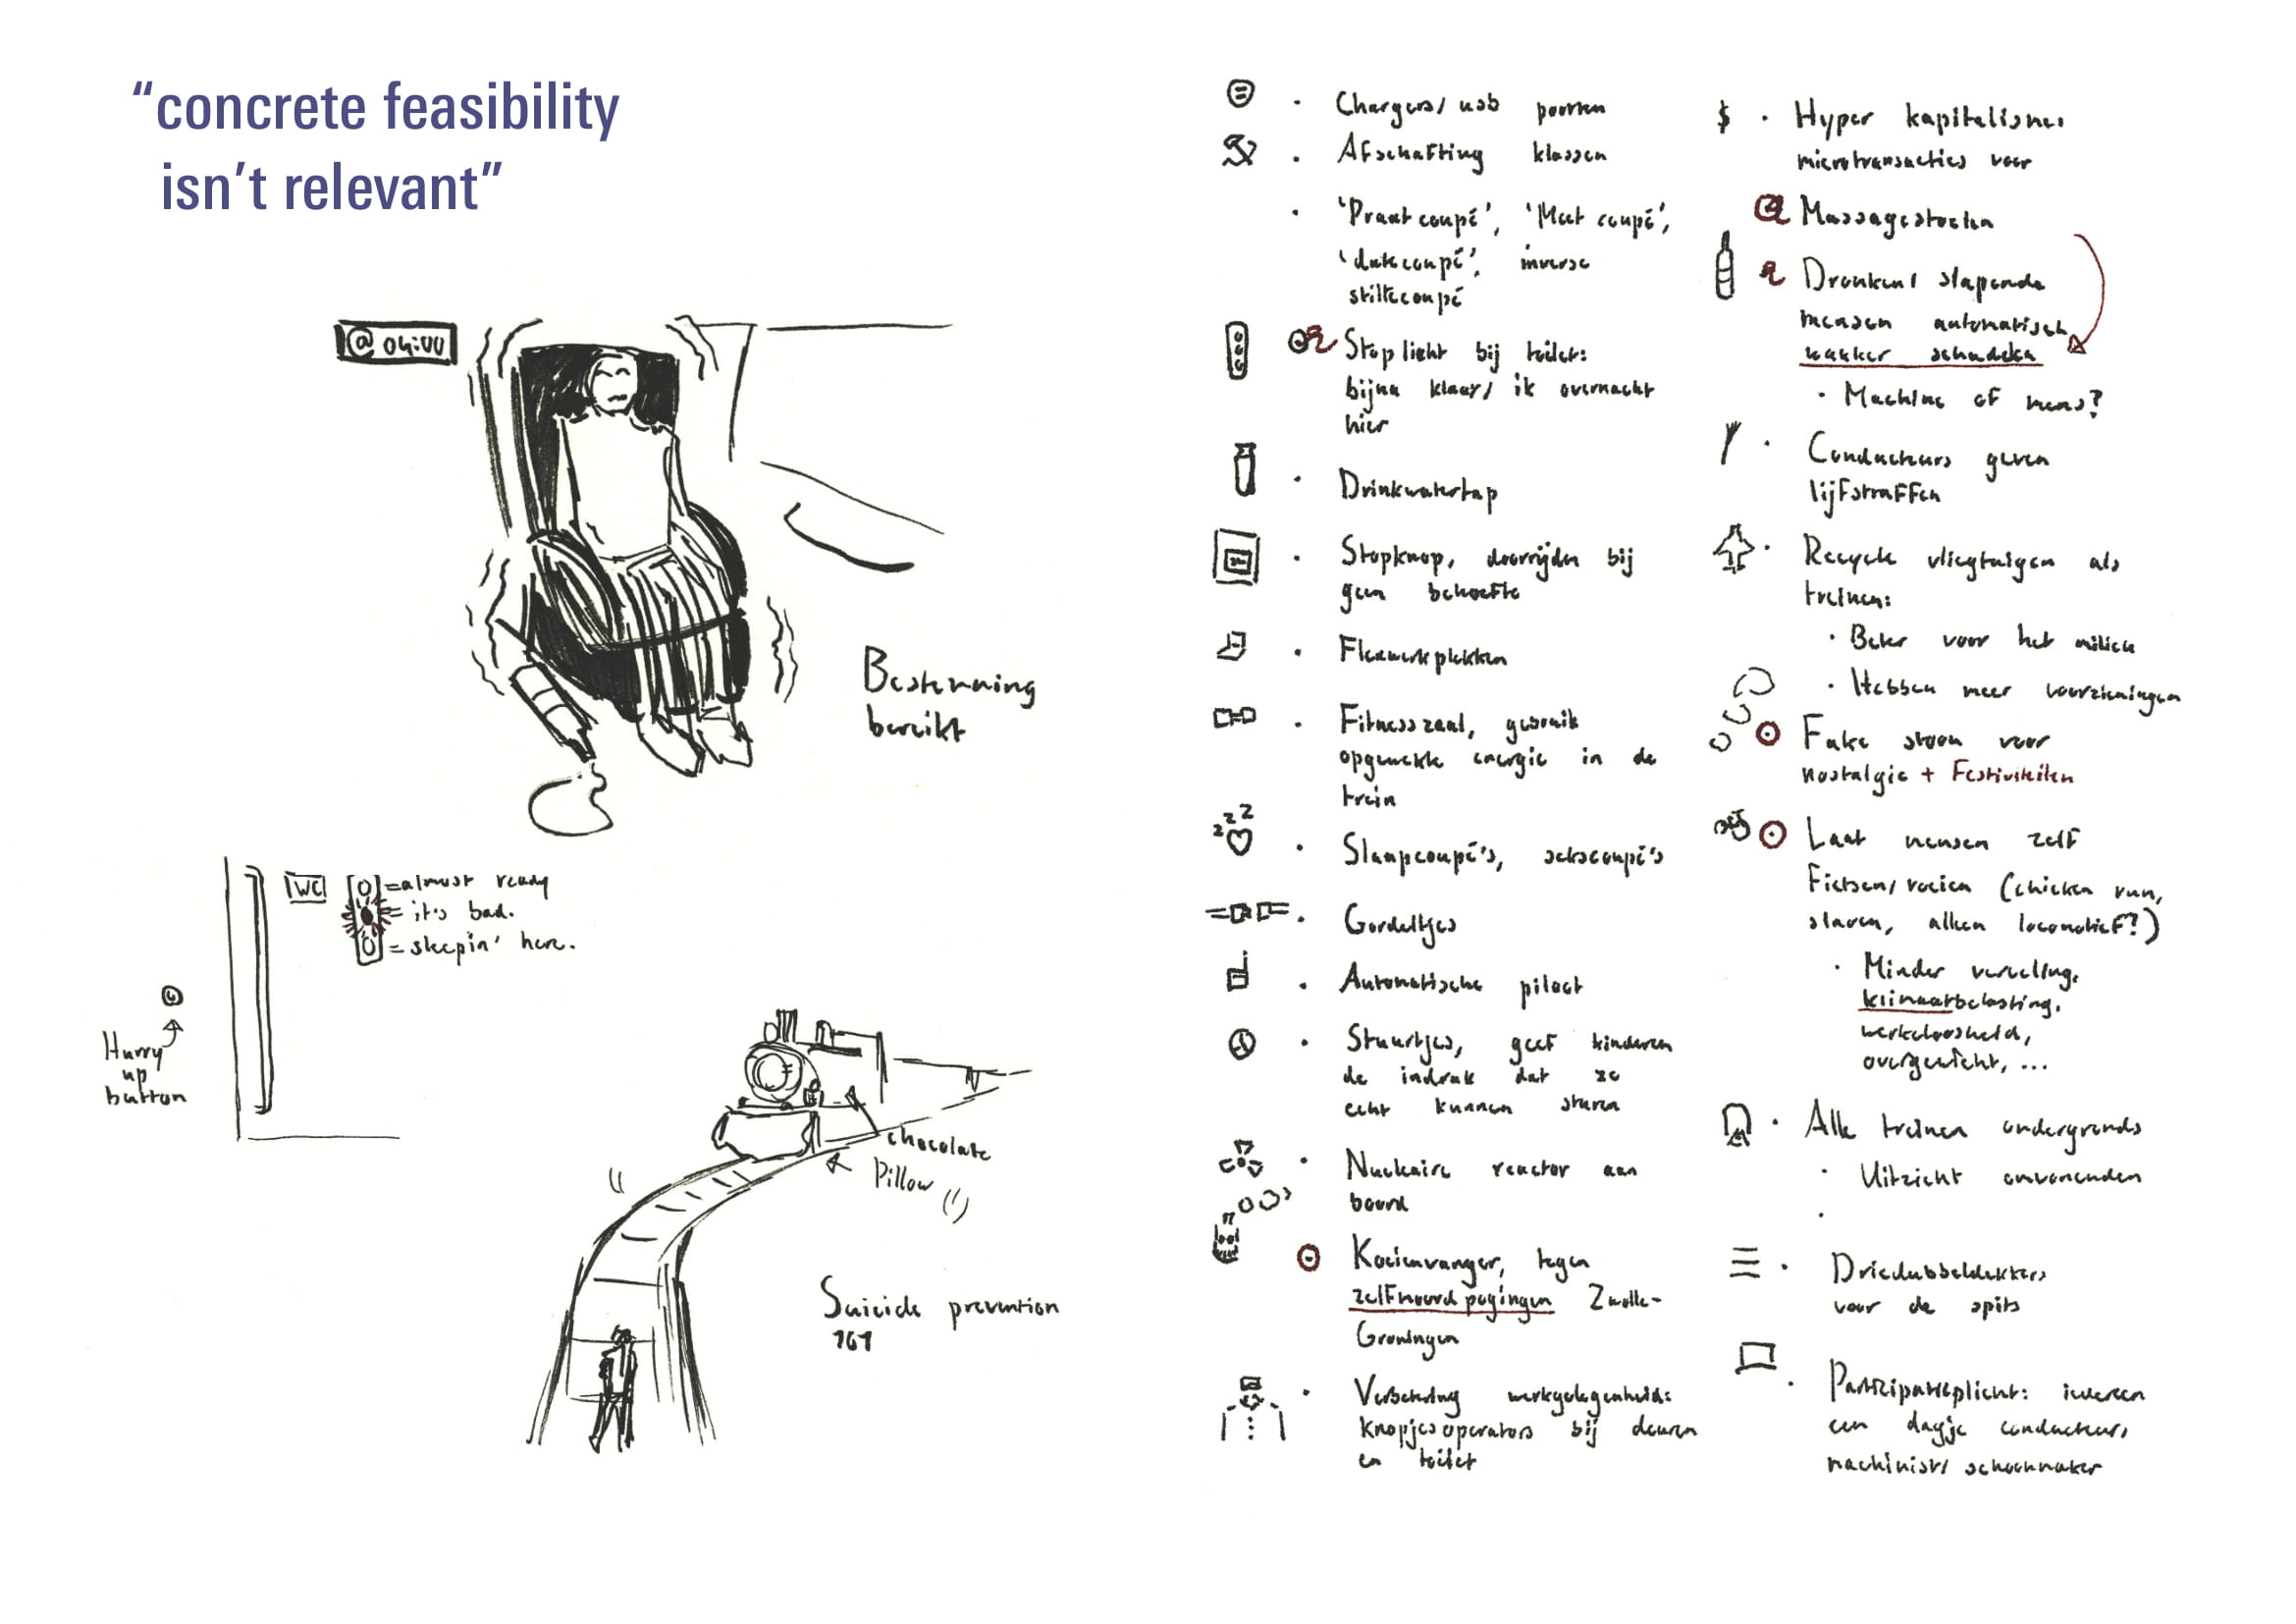 “concrete feasibility
isn’t relevant”
@ 04:00
Bestemming
bereikt
WC
=almost ready
= it's bad.
= sleepin' here.
Hurry
up
button
chocolate
Pillow
Suicide prevention
101
Chargers/ usb poorten
Afschaffing klassen
'Praatcoupé', 'Meet coupé',
'datecoupé', inverse
stiltecoupé
Stoplicht bij toilet:
bijna klaar/ ik overnacht
hier
Drinkwatertap
Stopknop, doorrijden bij
geen behoefte
Flexwerkplekken
Fitnesszaal, gebruik
opgewekte energie in de
trein
zzz
Slaapcoupé's, sekscoupé's
Gordeltjes
Automatische piloot
Stuurtjes, geef kinderen
de indruk dat ze
echt kunnen sturen
Nucleaire reactor aan
boord
Koeienvanger, tegen
zelfmoordpogingen Zwolle-
Groningen
Verbetering werkgelegenheid:
knopjesoperators bij deuren
en toilet
$ Hyper kapitalisme:
microtransacties voor
Massagestoelen
Dronken/ slapende
mensen automatisch
wakker schudden
Machine of mens?
Conducteurs geven
lijfstraffen
Recycle vliegtuigen als
treinen:
Beter voor het milieu
Hebben meer voorzieningen
Fake stoom voor
nostalgie + Festiviteiten
Laat mensen zelf
Fietsen/ roeien (chicken run,
slaven, alleen locomotief?)
Minder verveling,
klimaatbelasting,
werkeloosheid,
overgewicht, ...
Alle treinen ondergronds
Uitzicht omwonenden
Driedubbeldekkers
voor de spits
Participatieplicht: iedereen
een dagje conducteur/
machinist/ schoonmaker